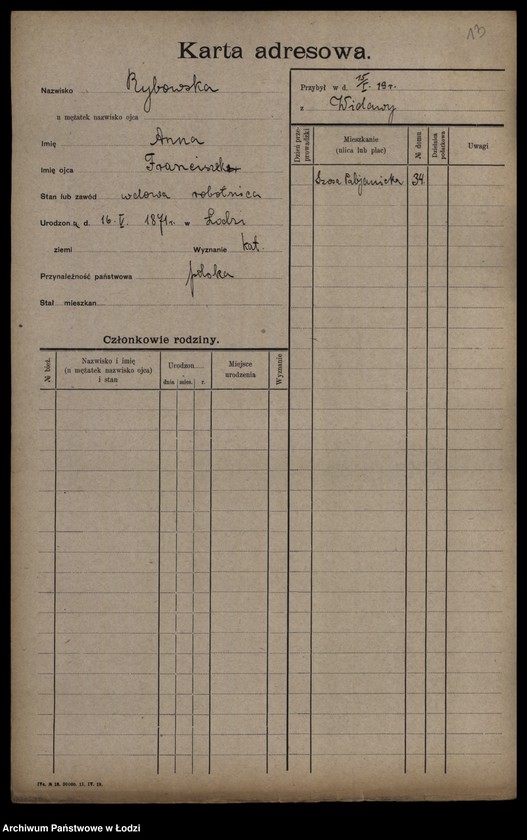 13
Karta adresowa.
Nazwisko Rybowska
u mężatek nazwisko ojca
Imię Anna
Imię ojca Franciszek
Stan lub zawód wdowa robotnica
Urodzon a d. 16. V. 1871 r. w Łodzi
ziemi Wyznanie kat.
Przynależność państwowa polska
Stał. mieszkan
Przybył w d. 15/I. 19 r.
z Widawy
Dzień prze-prowadzki
Mieszkanie (ulica lub plac)
№ domu
Dzielnica podatkowa
Uwagi
Szosa Pabjanicka 34
Członkowie rodziny.
№ bież.
Nazwisko i imię (u mężatek nazwisko ojca) i stan
Urodzon
dnia mies. r.
Miejsce urodzenia
Wyznanie
Archiwum Państwowe w Łodzi